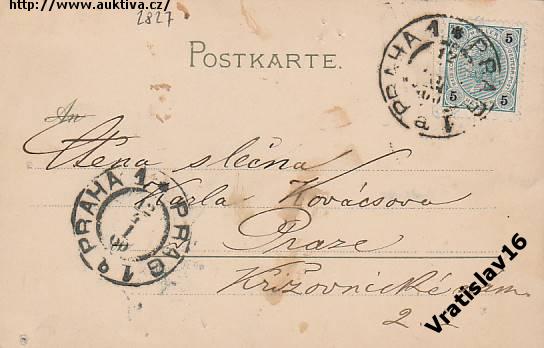 http://www.auktiva.cz/
2827
POSTKARTE.
An
Ctěna slečna
Karla Kovácsova
Praze
Křižovnické nám.
2.
PRAHA 1 * PRAG 1
5 5
5 5
PRAHA 1 * PRAG 1
Vratislav16